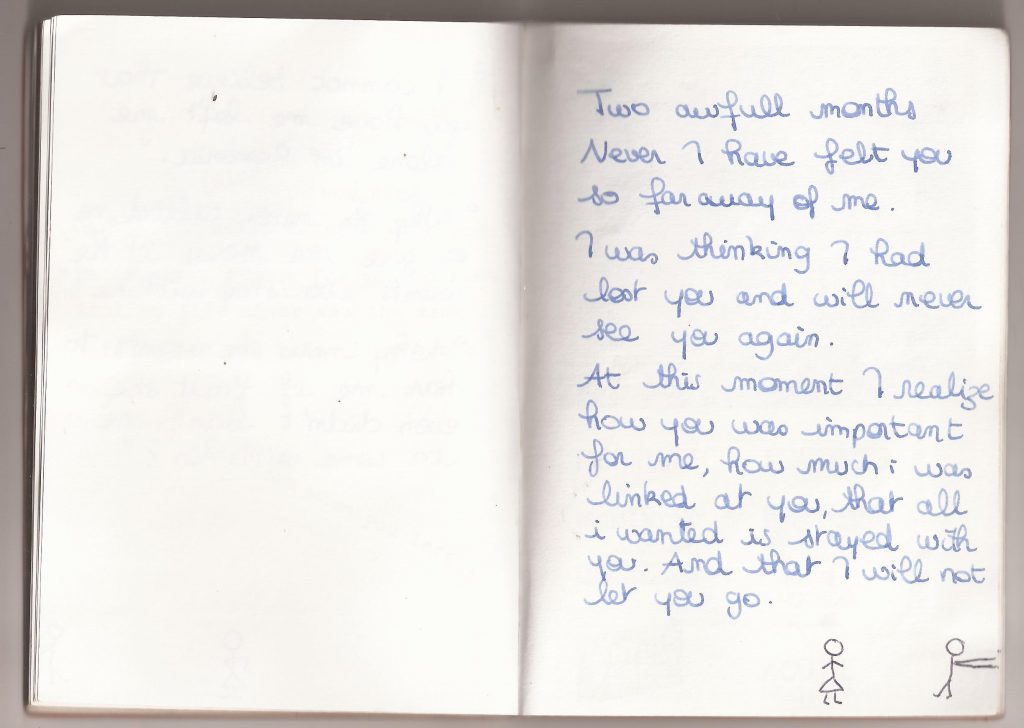 Two awfull months
Never I have felt you
so far away of me.
I was thinking I had
lost you and will never
see you again.
At this moment I realize
how you was important
for me, how much i was
linked at you, that all
i wanted is stayed with
you. And that I will not
let you go.